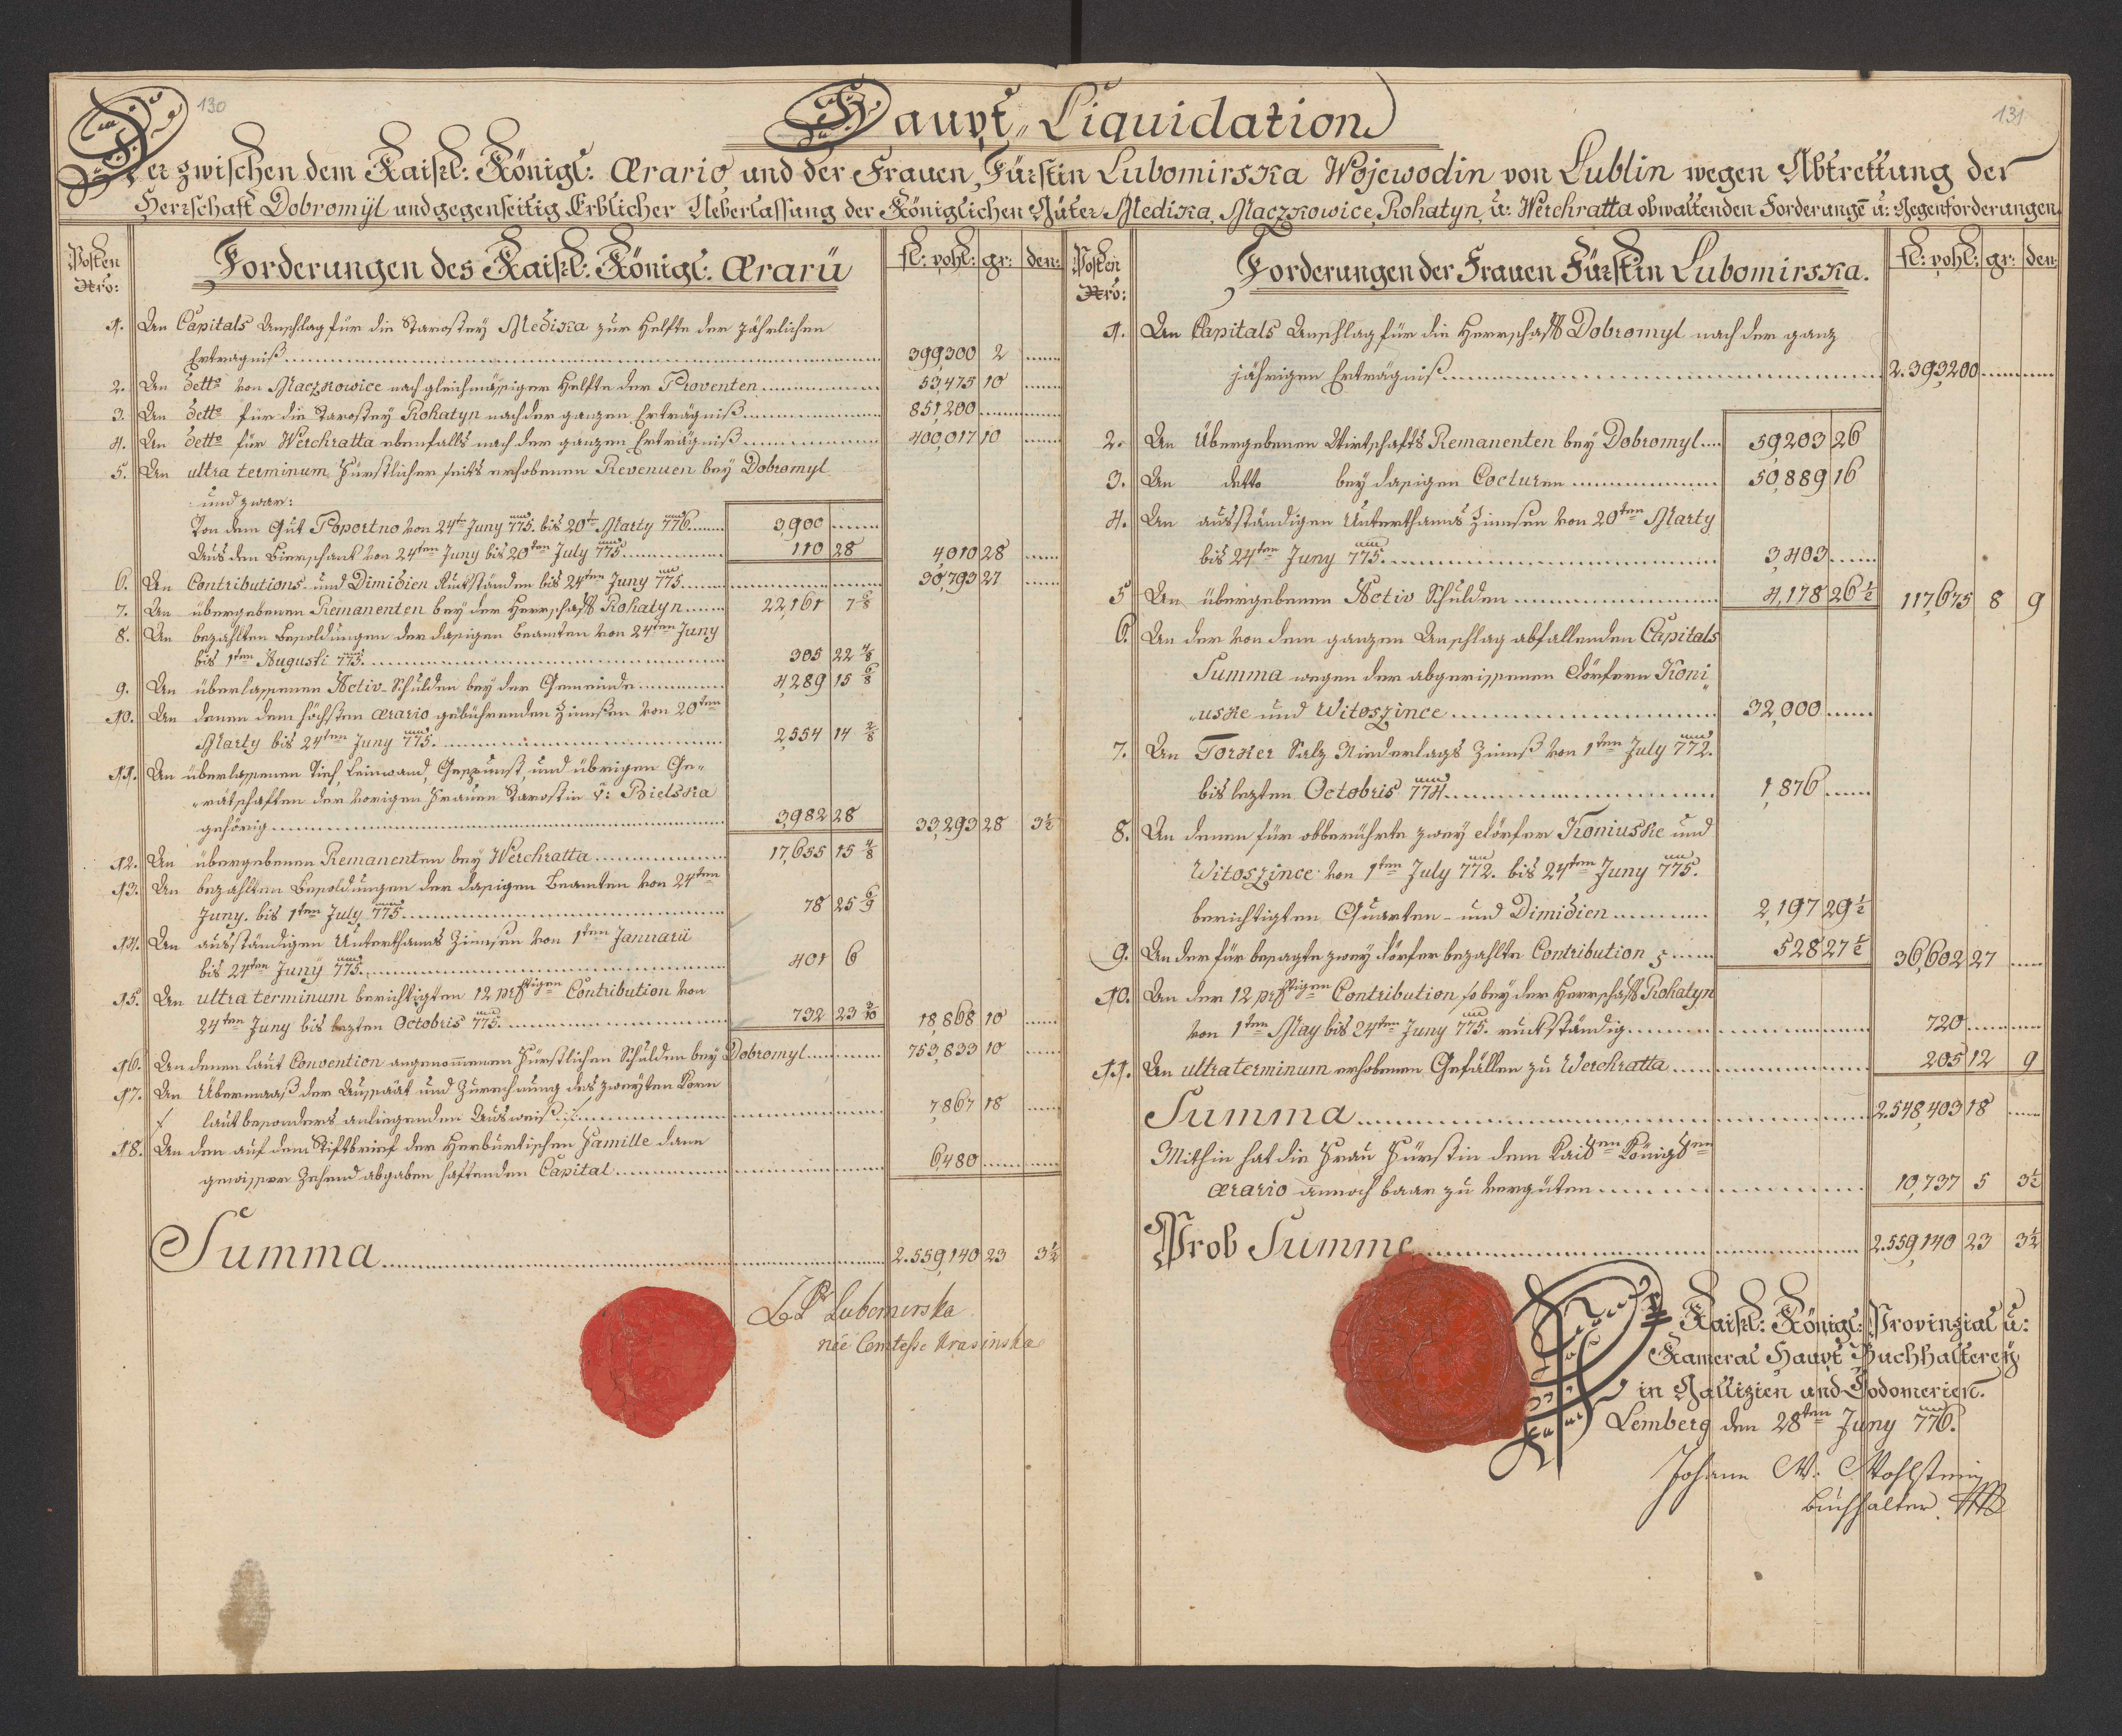 130
131
Haupt„Liquidation
Der zwischen dem Kaiserl: Königl: Ærario, und der Frauen, Fürstin Lubomirska Wojewodin von Lublin wegen Abtrettung der
Herrschaft Dobromÿl und gegenseitig Erblicher Ueberlassung der Königlichen Güter Medika, Maczkowice, Rohatyn, u: Werchratta obwaltenden Forderungē u: Gegenforderungen
Posten Nro:
Forderungen des Kaiserl: Königl: Ærarii
fl: pohl: gr: den:
1. An Capitals Anschlag für die Starostey Medika zur Helfte der jährlichen
Erträgniß 399,300 2
2. An detto von Maczkowice nach gleichmäßiger Helfte der Proventen 53,475 10
3. An detto für die Starostey Rohatyn nach der ganzen Erträgniß 851,200
4. An detto für Werchratta ebenfalls nach der ganzen Erträgniß 400,017 10
5. An ultra terminum Fürstlicher seits erhobenen Revenuen bey Dobromyl
und zwar:
Von dem Gut Poportno von 24ten Juny 775. bis 20ten Marty 776. 3,900
Aus dem Bierschank von 24ten Juny bis 20ten July 775. 110 28 4,010 28
6. An Contributions- und Dimidien Rückständen bis 24ten Juny 775. 30,793 27
7. An übergebenen Remanenten bey der Herrschaft Rohatyn 22,161 7 6/8
8. An bezahlten Besoldungen der dasigen Beamten von 24ten Juny
bis 1ten Augusti 775. 305 22 4/8
9. An überlassenen Activ-Schulden bey der Gemeinde 4,289 15 6/8
10. An denen dem höchsten ærario gebührenden Zinnßen von 20ten
Marty bis 24ten Juny 775. 2,554 14 2/8
11. An überlassenen Vieh, Leinwand, Gespunst und übrigen Ge„
„rätschaften der vorigen Frauen Starostin v: Bielska
gehörig 3,982 28 33,293 28 3½
12. An übergebenen Remanenten bey Werchratta 17,655 15 4/8
13. An bezahlten Besoldungen der dasigen Beamten von 24ten
Juny. bis 1ten July 775. 78 25 6/9
14. An ausständigen Unterthanns Zinnsen von 1ten Januarii
bis 24ten Junÿ 775. 401 6
15. An ultra terminum berichtigten 12 prctigen Contribution von
24ten Juny bis lezten Octobris 775. 732 23 3/10 18,868 10
16. An denen laut Convention angenommenen Fürstlichen Schulden bey Dobromyl 753,833 10
17. An Übermaaß der Aussaat und Zurechnung des zweyten Korn
laut besonders anliegenden Ausweiß 7,867 18
18. An den auf dem Stiftbrief der Herburtischen Familie dann
gewisser Zehend abgaben haftenden Capital 6,480
Summa 2.559,140 23 3½
Lubomirska
née Comtesse Krasinska
Posten Nro:
Forderungen der Frauen Fürstin Lubomirska.
fl: pohl: gr: den:
1. An Capitals Anschlag für die Herrschaft Dobromyl nach der ganz
jährigen Erträgniß 2.393,200
2. An Übergebenen Wirtschafts Remanenten bey Dobromyl 59,203 26
3. An detto bey dasigen Cocturen 50,889 16
4. An ausständigen Unterthanns Zinnsen von 20ten Marty
bis 24ten Juny 775. 3,403
5 An übergebenen Activ Schulden 4,178 26½ 117,675 8 9
6. An der von dem ganzen Anschlag abfallenden Capitals
Summa wegen der abgerissenen Dörfern Koni„
„uske und Witoszince 32,000
7. An Torker Salz Niederlags Zinnß von 1ten July 772.
bis lezten Octobris 774. 1,876
8. An denen für obberührte zwey Dörfer Koniuske und
Witoszince von 1ten July 772. bis 24ten Juny 775.
berichtigten Quarten- und Dimidien 2,197 29½
9. An der für besagte zwey Dörfer bezahlte Contribution 528 27½ 36,602 27
10. An der 12 prctigen Contribution so bey der Herrschaft Rohatyn
von 1ten May bis 24ten Juny 775. rückständig 720
11. An ultra terminum erhobenen Gefällen zu Werchratta 205 12 9
Summa 2.548,403 18
Mithin hat die Frau Fürstin dem Kaisen Königen
ærario annoch baar zu vergüten 10,737 5 3½
Prob Summe 2.559,140 23 3½
Kaiserl: Königl: Provinzial u:
Kameral Haupt Buchhalterey
in Gallizien und Lodomerien.
Lemberg den 28ten Juny 776.
Johann Wohlstein
Buchhalter